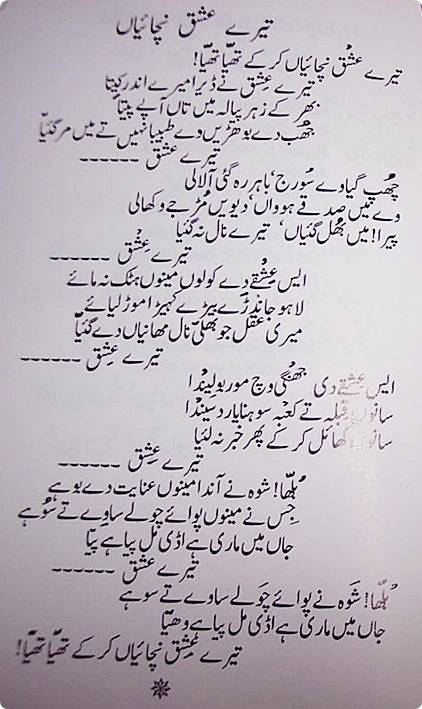 تیرے عشق نچائیاں
تیرے عشق نچائیاں کر کے تھیّا تھیّا!
تیرے عشق نے ڈیرا میرے اندر کیتا
بھر کے زہر پیالہ میں تاں آپے پیتا
جھب دے بوہڑیں وے طبیبا نہیں تے میں مر گئیّا
تیرے عشق ------
چھپ گیا وے سورج‘ باہر رہ گئی آ لالی
وے میں صدقے ہوواں‘ دیویں مُڑ جے وکھالی
پیرا! میں بھل گئیاں‘ تیرے نال نہ گئیا
تیرے عِشق ------
ایس عشقے دے کولوں مینوں ہٹک نہ مائے
لاہو جاندڑے بیڑے کہیڑا موڑ لیائے
میری عقل جو بھلی نال مہانیاں دے گئیّا
تیرے عِشق ------
ایس عشقے دی جھنگی وچ مور بولیندا
سانوں قبلہ تے کعبہ سوہنا یار دسیندا
سانوں گھائل کر کے پھر خبر نہ لئیا
تیرے عِشق ------
بُلھّا! شوہ نے آندا مینوں عنایت دے بوہے
جِس نے مینوں پوائے چولے ساوے تے سُوہے
جاں میں ماری ہے اڈی مل پیا ہے پیّا
تیرے عشق ------
بُلھّا! شَوہ نے پوائے چَولے ساوے تے سوہے
جاں میں ماری ہے اڈی مل پیا ہے وھیّا
تیرے عِشق نچائیاں کر کے تھیّا تھیّا!